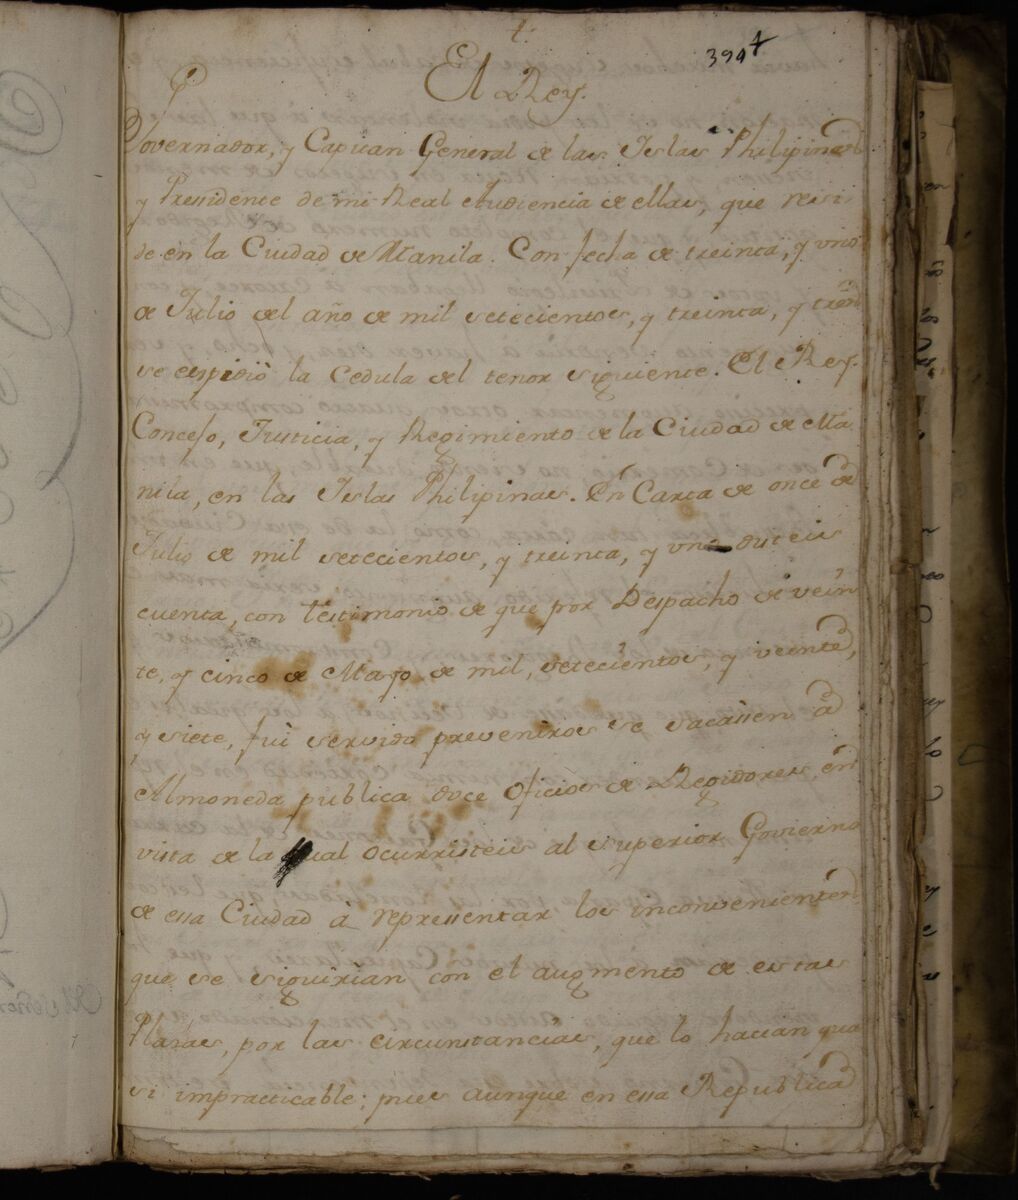 t.
394
El Rey.
Governador, y Capitan General de las Yslas Philipinas
y Presidente de mi Real Audiencia de ellas, que resi
de en la Ciudad de Manila. Con fecha de treinta, y uno
de Julio del año de mil setecientos, y treinta, y tres
se espidiò la Cedula del tenor siguiente. El Rey.
Concejo, Justicia, y Regimiento de la Ciudad de Ma
nila, en las Yslas Philipinas. En Carta de once de
Julio de mil setecientos, y treinta, y uno disteis
cuenta, con testimonio de que por Despacho de vein
te, y cinco de Mayo de mil, setecientos, y veinte,
y siete, fui servido preveniros se sacassen à
Almoneda publica doce Oficios de Regidores, en
vista de la qual ocurristeis al Superior Govierno
de essa Ciudad a representar los inconvenientes
que se siguirian con el augmento de estas
Plazas, por las circunstancias, que lo hacian qua
si impracticable; pues aunque en essa Republica